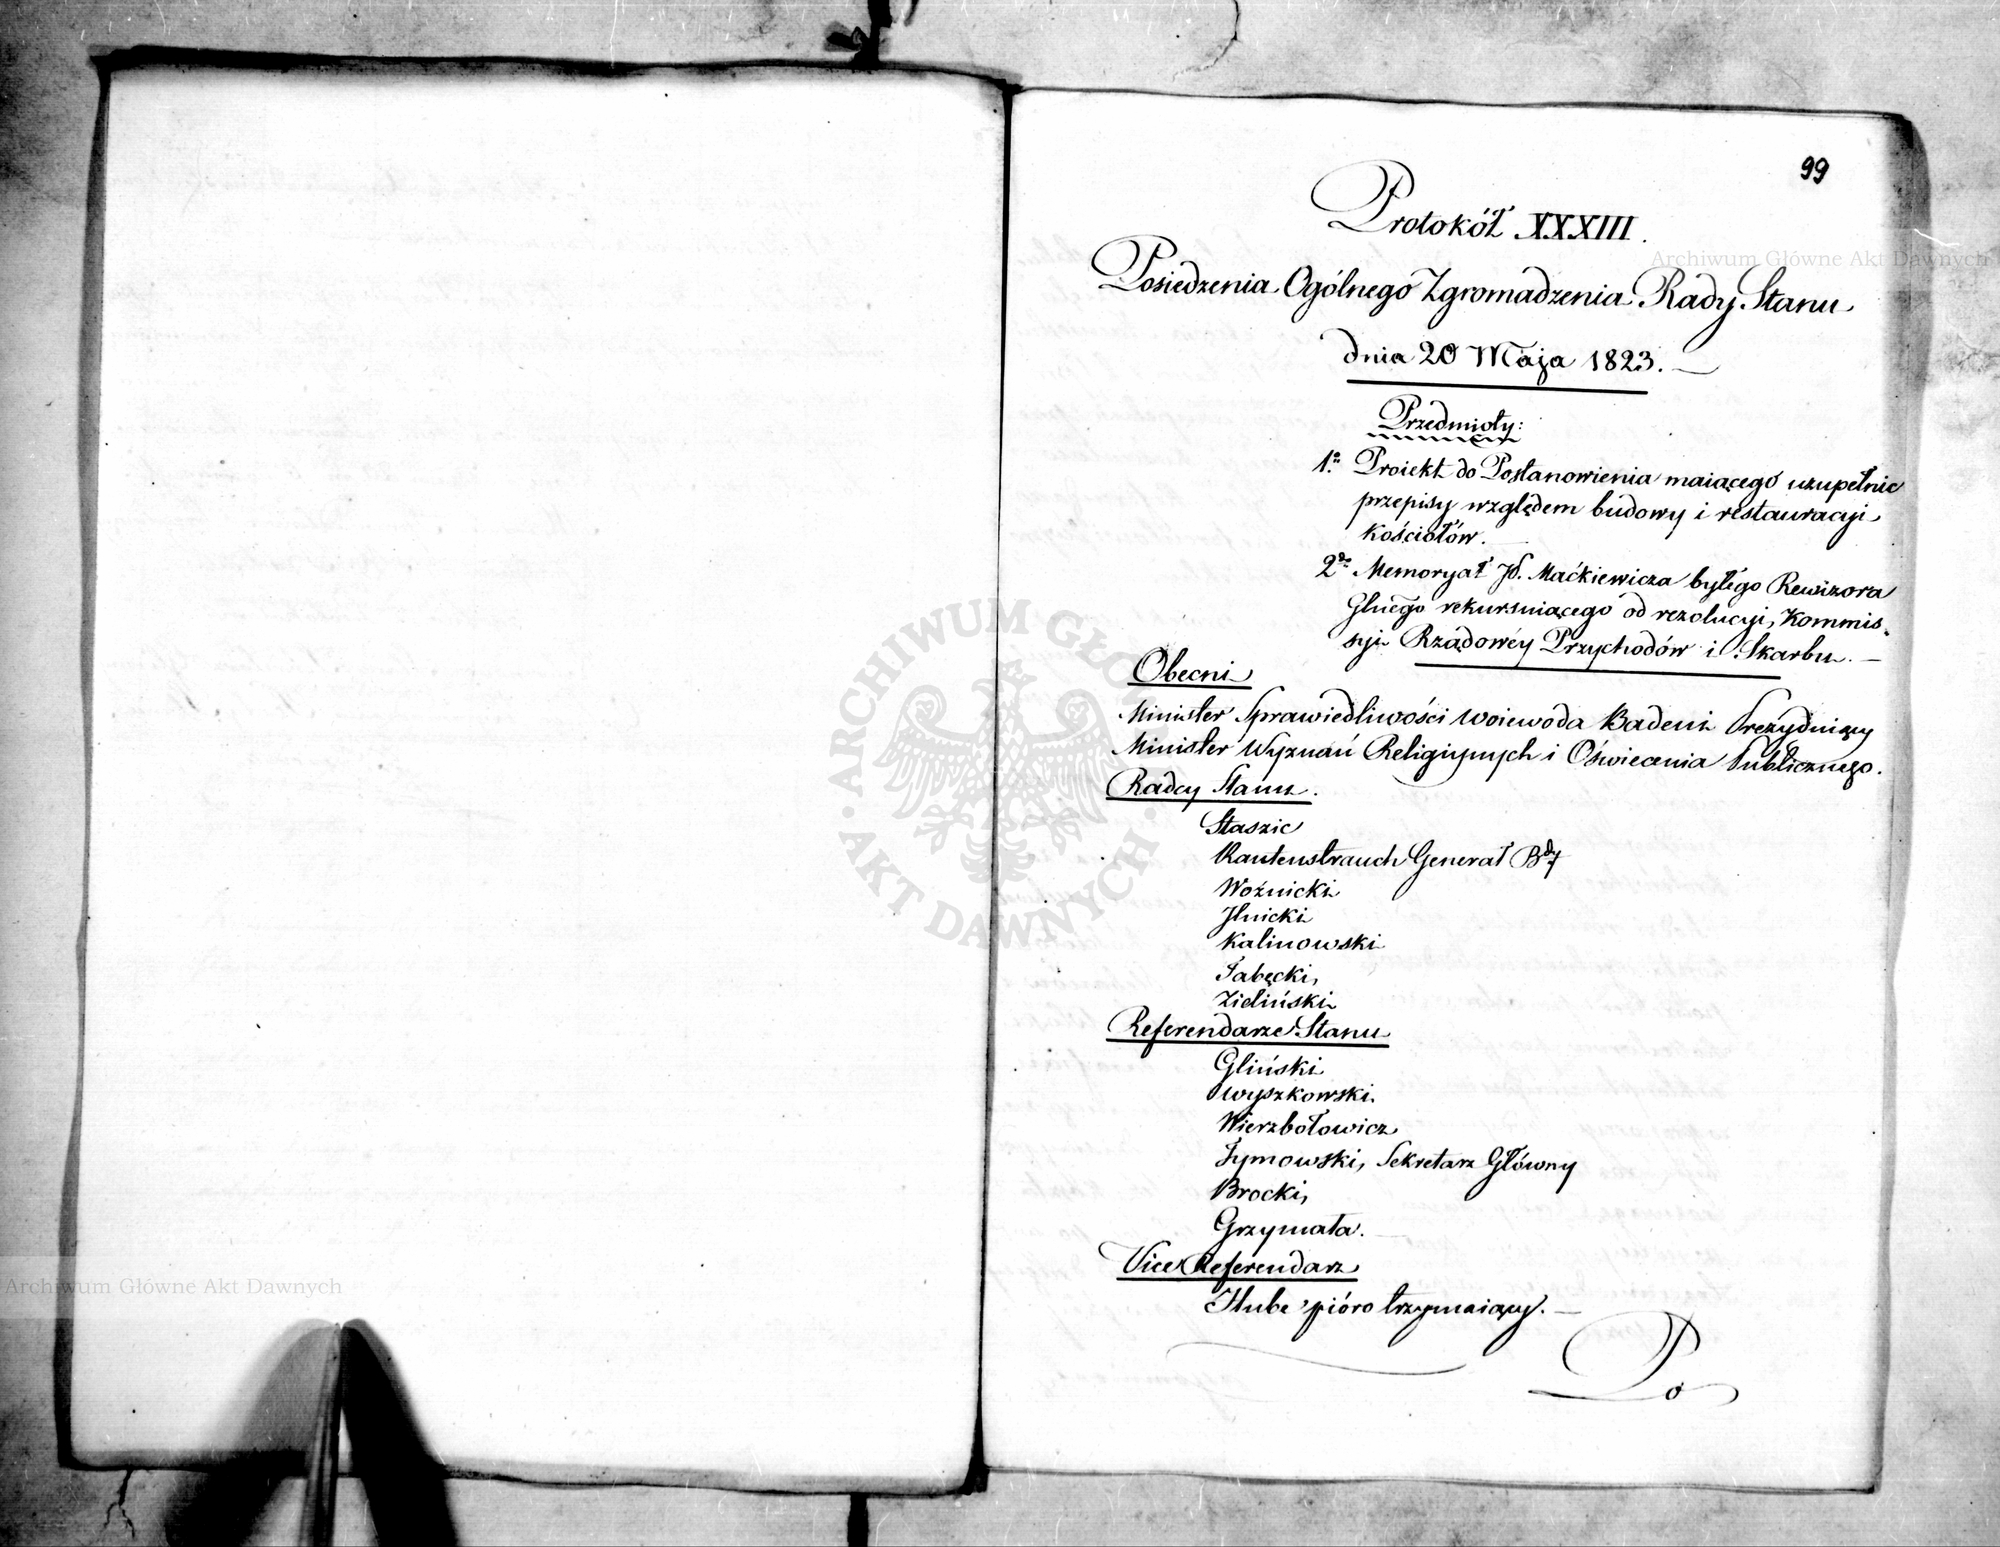 99
Protokół XXXIII.
Posiedzenia Ogólnego Zgromadzenia Rady Stanu
dnia 20 Maja 1823. —
Przedmioty:
1º Proiekt do Postanowienia maiącego uzupełnić
przepisy względem budowy i restauracyi
kościołów. —
2do Memoryał JP. Maćkiewicza byłego Rewizora
Głnego rekursuiącego od rezolucyi, Kommis-
syi Rządowéy Przychodów i Skarbu. —
Obecni
Minister Sprawiedliwości Woiewoda Badeni Prezyduiący
Minister Wyznań Religiynych i Oświecenia Publicznego.
Radcy Stanu.
Staszic
Rautenstrauch Generał Bdy
Woźnicki
Jlnicki
Kalinowski
Łabęcki,
Zieliński
Referendarze Stanu
Gliński
Wyszkowski.
Wierzbołowicz
Tymowski, Sekretarz Główny
Brocki,
Grzymała. —
Vice Referendarz
Hube pióro trzymaiący. —
Po
Archiwum Główne Akt Dawnych
Archiwum Główne Akt Dawnych
ARCHIWUM GŁÓWNE AKT DAWNYCH